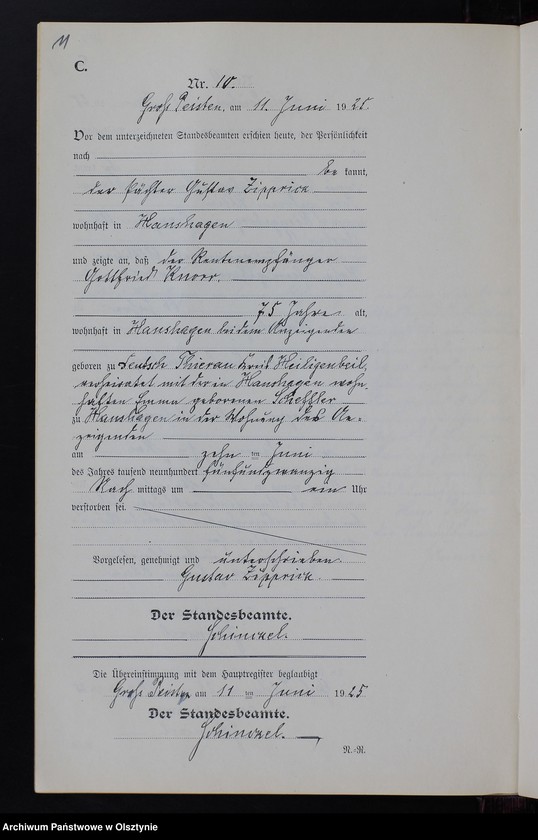 11
C.
Nr. 10.
Groß Peisten, am 11. Juni 1925.
Vor dem unterzeichneten Standesbeamten erschien heute, der Persönlichkeit
nach
be kannt,
der Pächter Gustav Zipprick
wohnhaft in Hanshagen
und zeigte an, daß der Rentenempfänger
Gottfried Knorr.
75 Jahre alt,
wohnhaft in Hanshagen bei dem Anzeigenden
geboren zu Deutsch Thierau Kreis Heiligenbeil,
verheiratet mit der in Hanshagen wohn-
haften Emma geborenen Scheffler
zu Hanshagen in der Wohnung des An-
zeigenden
am zehn ten Juni
des Jahres tausend neunhundert fünfundzwanzig
Nach mittags um ein Uhr
verstorben sei.
Vorgelesen, genehmigt und unterschrieben
Gustav Zipprick
Der Standesbeamte.
Schinzel.
Die Übereinstimmung mit dem Hauptregister beglaubigt
Groß Peisten am 11 ten Juni 1925
Der Standesbeamte.
Schinzel.
N.-R.
Archiwum Państwowe w Olsztynie